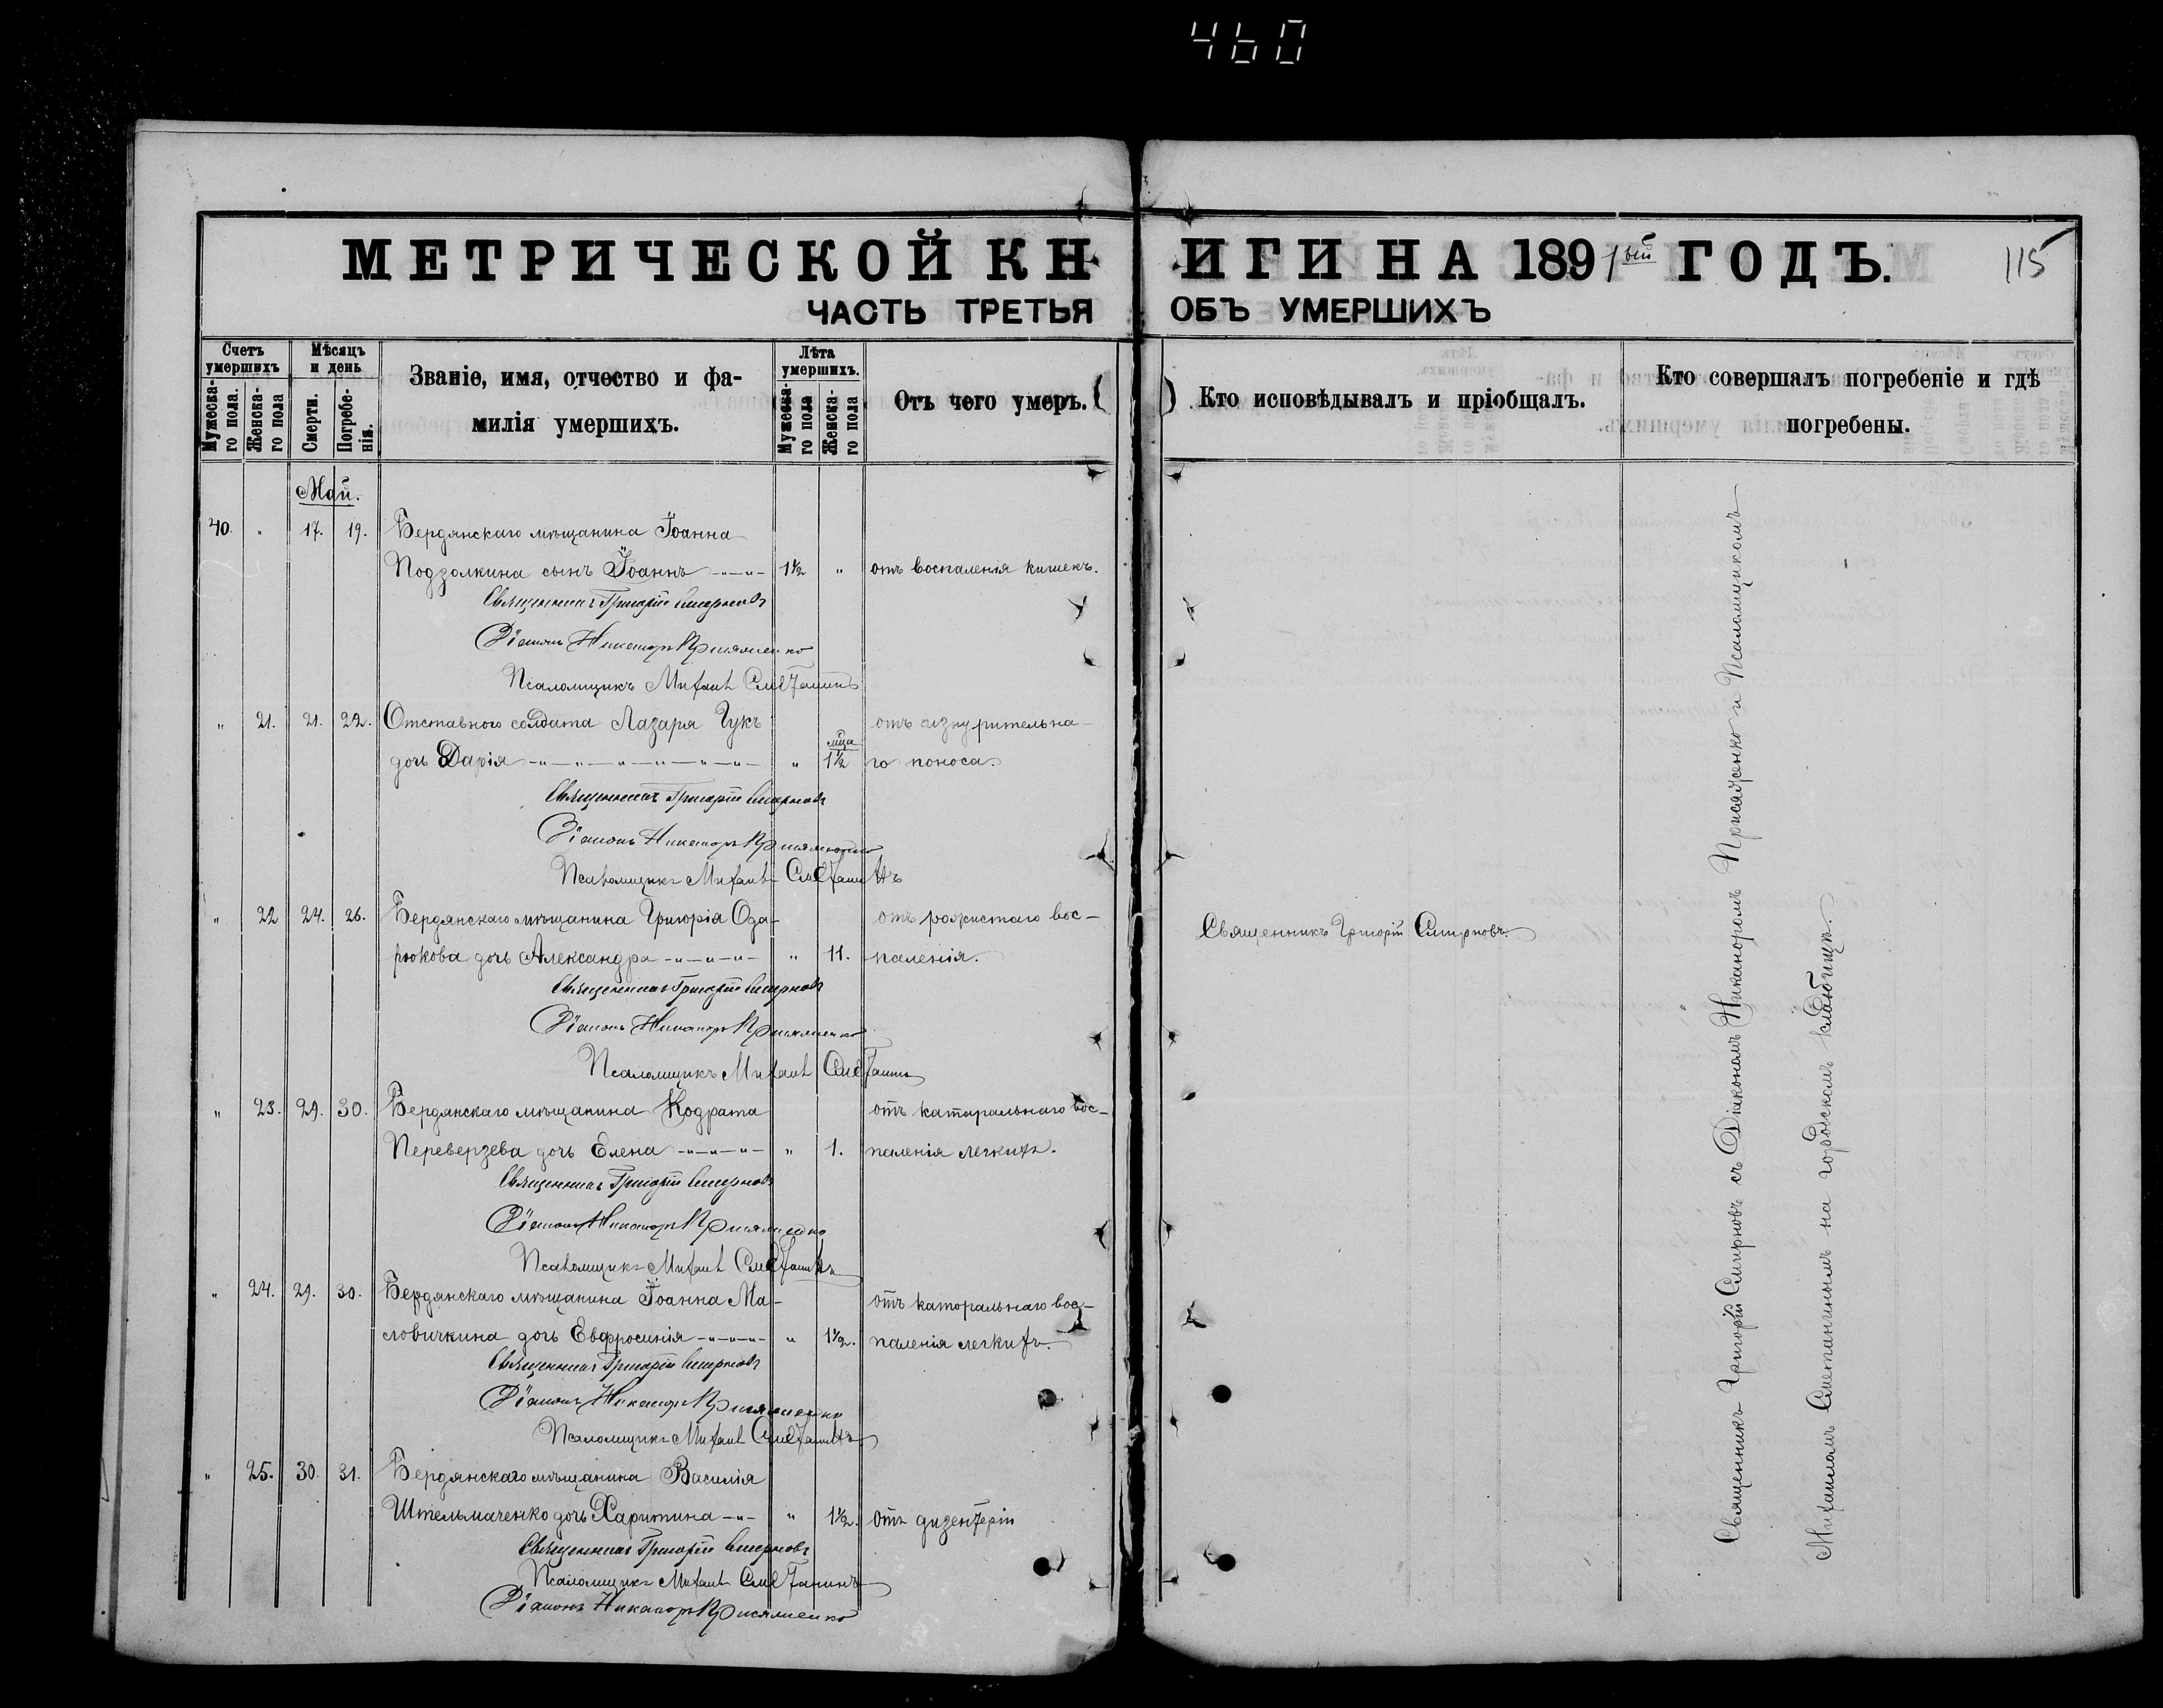 460
МЕТРИЧЕСКОЙ КНИГИ НА 1891ый ГОДЪ.
115
ЧАСТЬ ТРЕТЬЯ ОБЪ УМЕРШИХЪ
Счетъ умершихъ
Мужеска-го пола.
Женска-го пола
Мѣсяцъ и день
Смерти.
Погребе-нія.
Званіе, имя, отчество и фа-
милія умершихъ.
Лѣта умершихъ.
Мужеска-го пола
Женска-го пола
Отъ чего умеръ.
Кто исповѣдывалъ и пріобщалъ.
Кто совершалъ погребеніе и гдѣ
погребены.
Май.
40. " 17. 19. Бердянскаго мѣщанина Іоанна
Подзолкина сынъ Іоаннъ 1½ " отъ воспаленія кишекъ.
Священникъ Григорій Смирновъ
Діаконъ Никаноръ Присяженко
Псаломщикъ Михаилъ Сметанинъ
" 21. 21. 22. Отставного солдата Лазаря Гукъ отъ изнурительна-
дочь Дарія " мца 1½ го поноса.
Священникъ Григорій Смирновъ
Діаконъ Никаноръ Присяженко
Псаломщикъ Михаилъ Сметанинъ
" 22 24. 26. Бердянскаго мѣщанина Григорія Ода- отъ рожистаго вос-
рюкова дочь Александра " 11. паленія.
Священникъ Григорій Смирновъ.
Священникъ Григорій Смирновъ
Діаконъ Никаноръ Присяженко
Псаломщикъ Михаилъ Сметанинъ
" 23. 29. 30. Бердянскаго мѣщанина Кодрата отъ катаральнаго вос-
Переверзева дочь Елена " 1. паленія легкихъ.
Священникъ Григорій Смирновъ
Діаконъ Никаноръ Присяженко
Псаломщикъ Михаилъ Сметанинъ
" 24. 29. 30. Бердянскаго мѣщанина Іоанна Ма- отъ каторальнаго вос-
ловичкина дочь Евфросинія " 1½. паленія легкихъ.
Священникъ Григорій Смирновъ
Діаконъ Никаноръ Присяженко
Псаломщикъ Михаилъ Сметанинъ
" 25. 30. 31. Бердянскаго мѣщанина Василія
Штельмаченко дочь Харитина " 1½. отъ дизентеріи
Священникъ Григорій Смирновъ
Псаломщикъ Михаилъ Сметанинъ
Діаконъ Никаноръ Присяженко
Священникъ Григорій Смирновъ съ Діакономъ Никаноромъ Присяженко и Псаломщикомъ
Михаиломъ Сметанинымъ на городскомъ кладбищѣ.